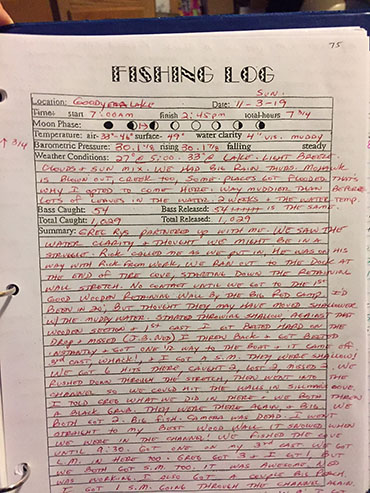 75
FISHING LOG
SUN.
Location: GOODYEAR LAKE Date: 11-3-19
Time: start 7:00 am finish 2:45 pm total-hours 7 3/4
Moon Phase:
↑ 3/4
Temperature: air- 33°-46° surface- 49° water clarity 4" VIS. MUDDY
Barometric Pressure: 30.1 4/8 rising 30.1 7/8 falling steady
Weather Conditions: 27° @ 5:00. 33° @ LAKE. LIGHT BREEZE.
CLOUDS + SUN MIX. WE HAD BIG RAIN THURS. MOHAWK
IS BLOWN OUT, CREEK TOO, SOME PLACES GOT FLOODED. THAT'S
WHY I OPTED TO COME HERE. WAY MUDDIER THAN BEFORE
LOTS OF LEAVES IN THE WATER. 2 WEEKS + THE WATER TEMP.
Bass Caught: 54 Bass Released: 54 IS THE SAME.
Total Caught: 1,029 Total Released: 1,029
Summary: GREG RYS PARTNERED UP WITH ME. WE SAW THE
WATER CLARITY + THOUGHT WE MIGHT BE IN A
STRUGGLE. RICK CALLED ME AS WE PUT IN, HE WAS ON HIS
WAY WITH RICK FROM WORK. WE RAN OUT TO THE DOCK AT
THE END OF TIRE COVE, STARTING DOWN THE RETAINING
WALL STRETCH. NO CONTACT UNTIL WE GOT TO THE 1ST
GOOD WOODEN RETAINING WALL BY THE BIG RED CAMP. I'D
BEEN IN 20', BUT THOUGHT THEY MAY HAVE MOVED SHALLOWER
W/ THE MUDDY WATER. STARTED THROWING SHALLOW AGAINST THAT
WOODEN SECTION + 1ST CAST I GOT BELTED HARD ON THE
DROP + MISSED (J.S. NOD) I THREW BACK + GOT BELTED
INSTANTLY + GOT ONE 1/2 WAY TO THE BOAT + IT CAME OFF.
3rd CAST, WHACK!, + I GOT A S.M. THEY WERE SHALLOW!
WE GOT 6 HITS THERE, CAUGHT 2, LOST 2, MISSED 2. WE
RUSHED DOWN THROUGH THE STRETCH, THEN WENT INTO
CHANNEL SO WE COULD HIT THE WALLS IN SILLMAN COVE.
I TOLD GREG WHAT WE DID IN THERE + WE BOTH THREW
A BLACK GRUB. THEY WERE THERE AGAIN + BIG. WE
BOTH GOT 2 BIG FISH. CAMERA WAS DEAD. I WENT
STRAIGHT TO MY BEST WOOD WALL. IT SNOWED WHEN
WE WERE IN THE CHANNEL! WE FISHED THE COVE
UNTIL 9:30. GOT ONE ON MY 3RD CAST. WE GOT
L.M. IN HERE TOO. GREG GOT 3 + I GOT 1, BUT
WE BOTH GOT S.M. TOO. IT WAS AWESOME. GREG
WAS WORKING. I ALSO GOT A COUPLE BIG PERCH.
I GOT 1 S.M. GOING THROUGH THE CHANNEL AGAIN.